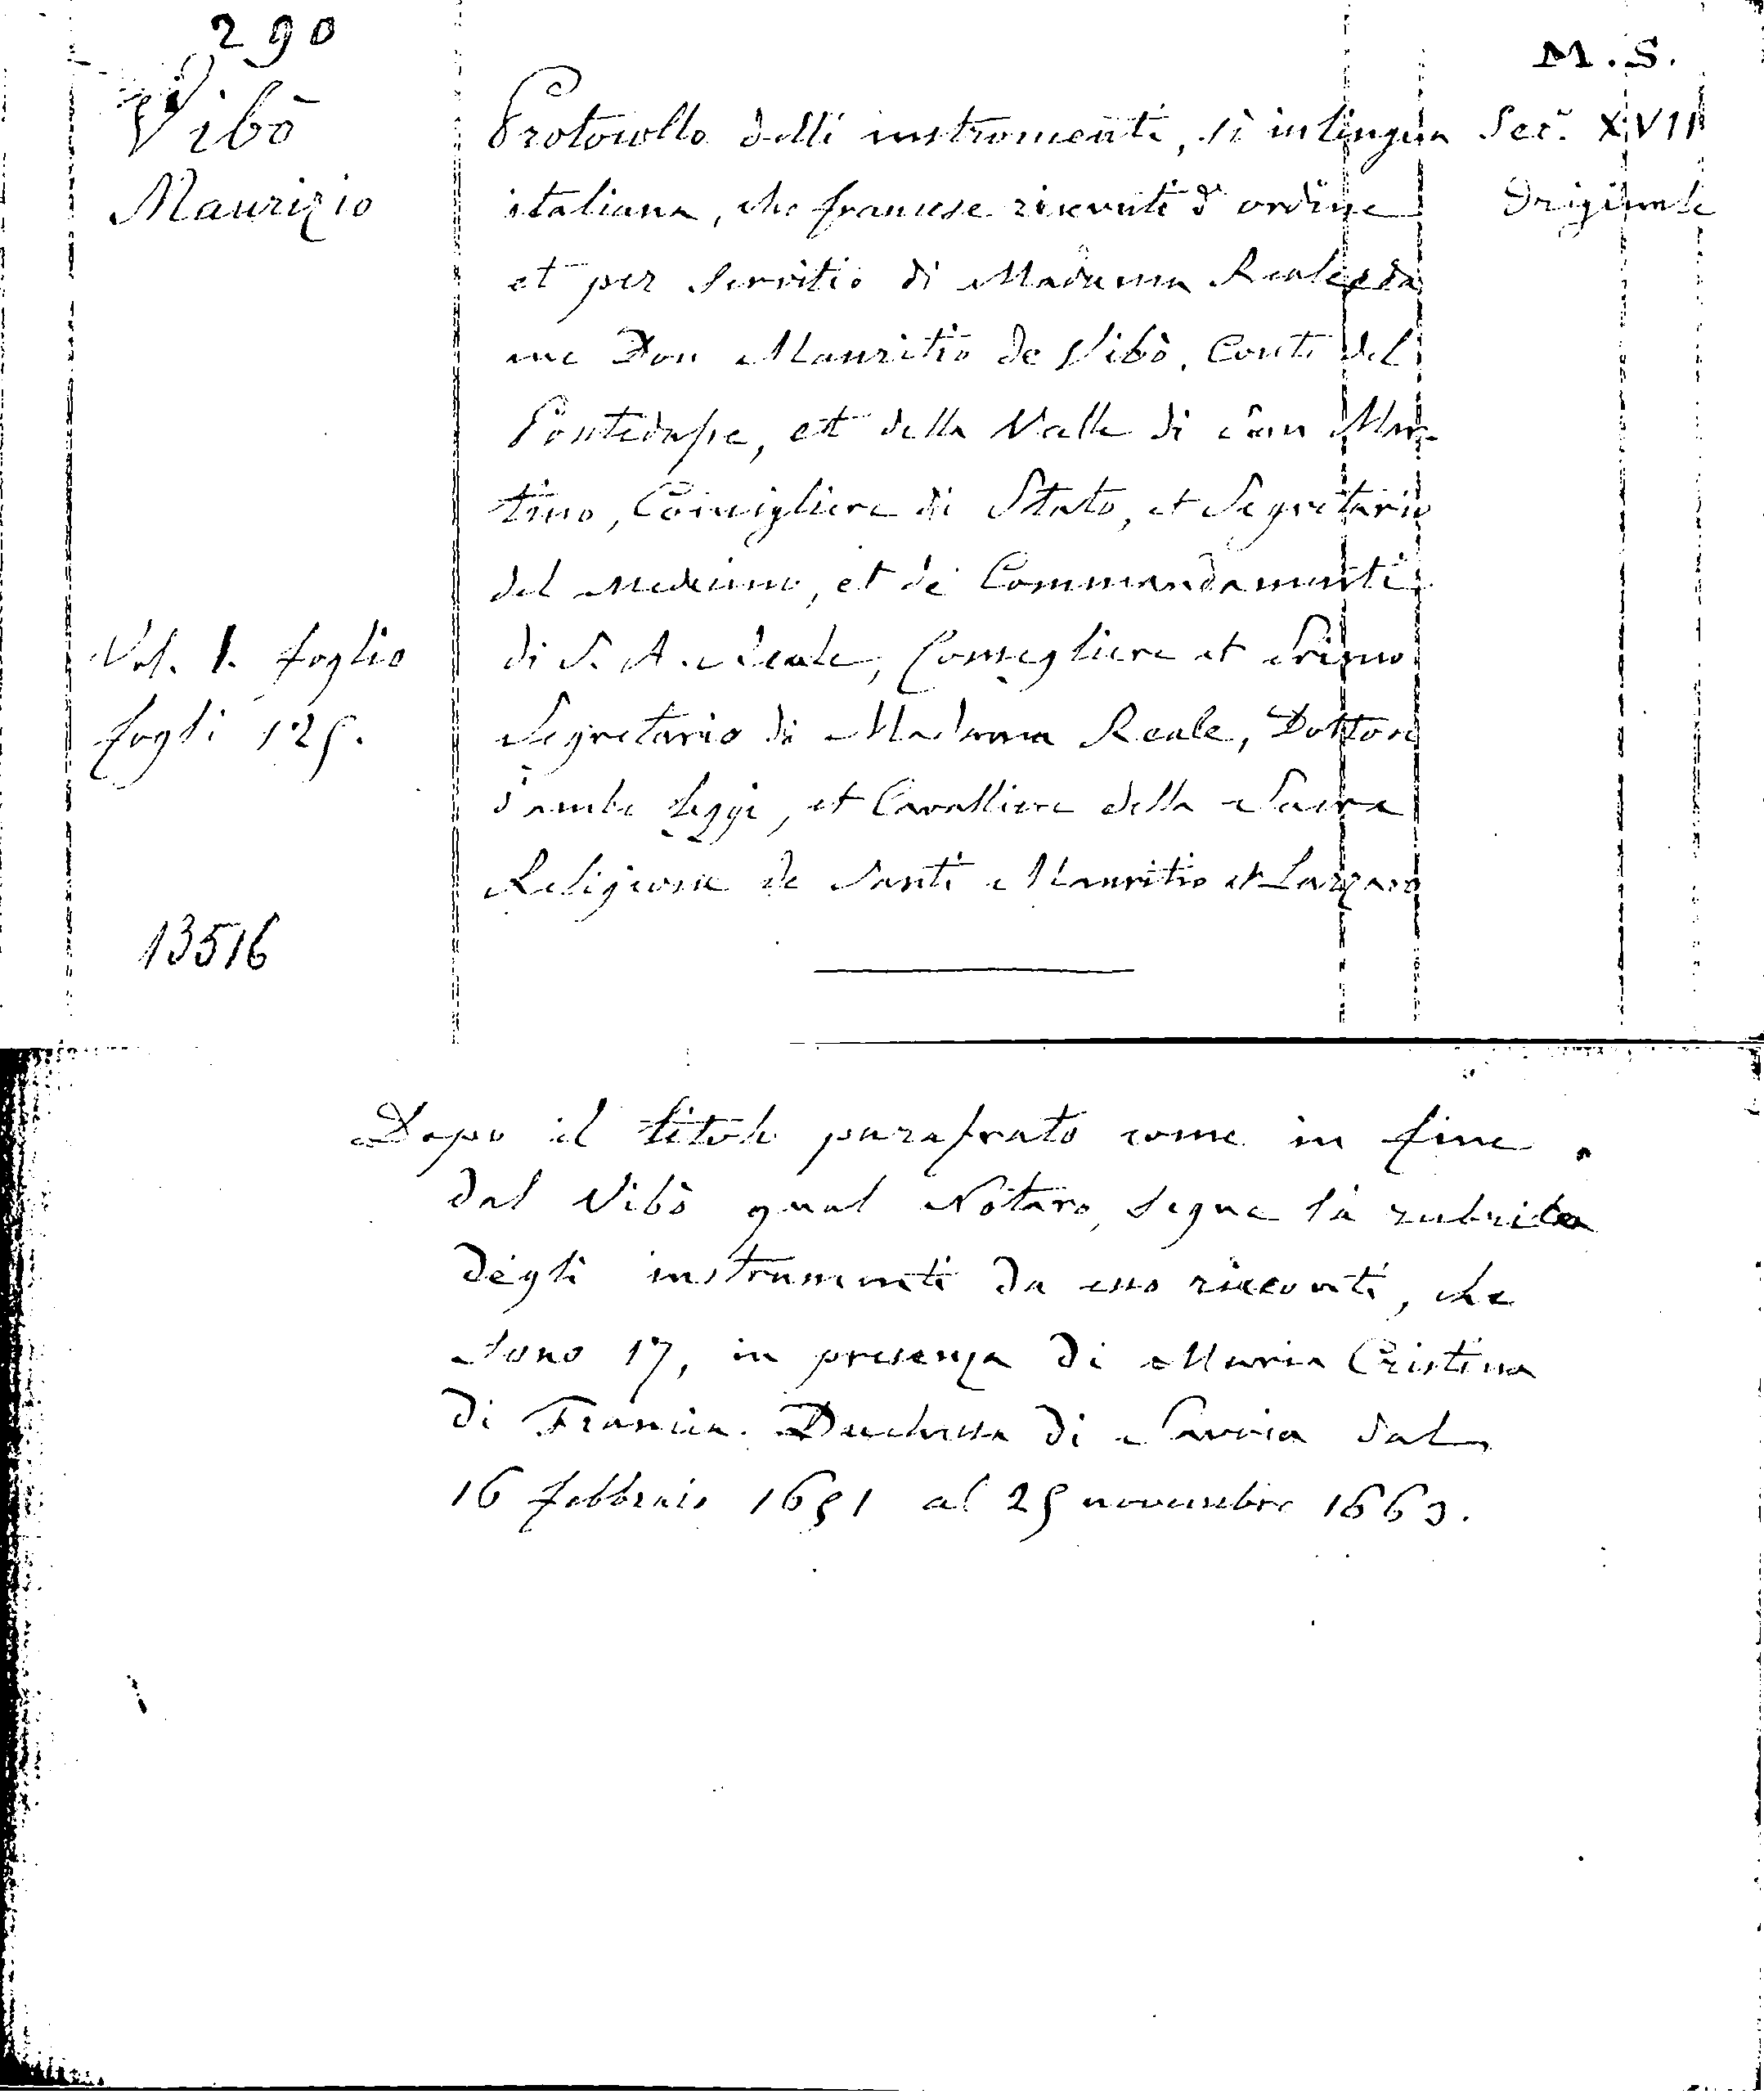 290
M.S.
Vibò
Maurizio
Protocollo delli instromenti, sì in lingua
italiana, che francese ricevuti d'ordine
et per servitio di Madama Reale da
me Don Mauritio de Vibò, Conte del
et della Valle di San Mar-
tino, Consigliere di Stato, et Segretario
del medesimo, et de Commandamenti
di S. A. Reale, Consegliere et Primo
Segretario di Madama Reale, Dottore
d'ambe leggi, et Cavalliere della Sacra
Religione de Santi Mauritio et Lazzaro
Sec. XVII
Originale
Vol. 1. foglio
fogli 125.
13516
Dopo il titolo parafrato come in fine
dal Vibò qual Notaro, segue la rubrica
degli instrumenti da esso ricevuti, che
sono 17, in presenza di Maria Cristina
di Francia. Duchessa di Savoia dal
16 febbraio 1651 al 25 novembre 1663.